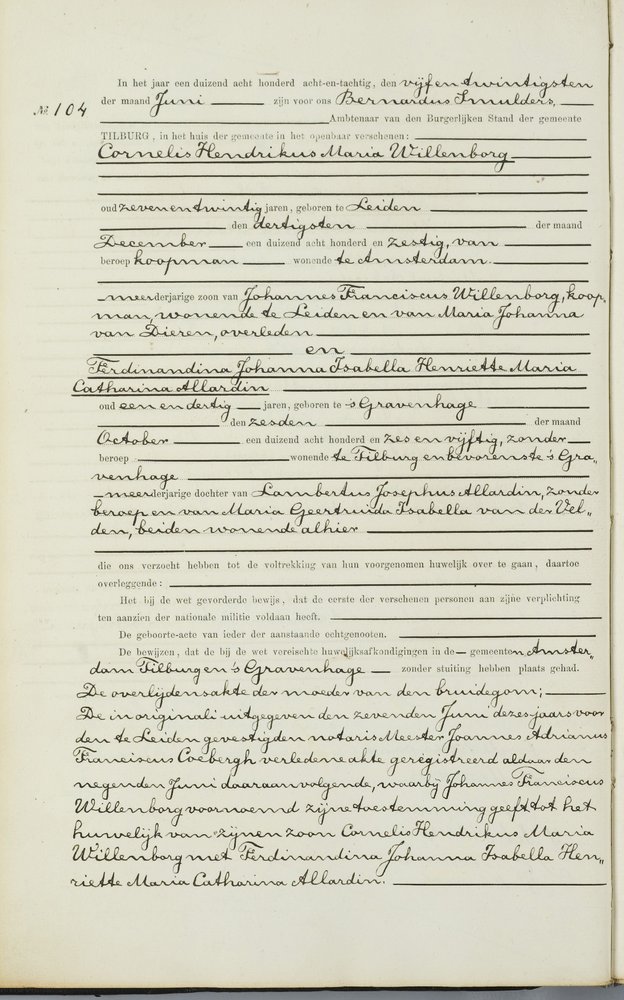 In het jaar een duizend acht honderd acht-en-tachtig, den vijf en twintigsten
№ 104
der maand Juni zijn voor ons Bernardus Smulders,
Ambtenaar van den Burgerlijken Stand der gemeente
TILBURG, in het huis der gemeente in het openbaar verschenen:
Cornelis Hendrikus Maria Willenborg
oud zeven en twintig jaren, geboren te Leiden
den dertigsten der maand
December een duizend acht honderd en zestig, van
beroep koopman wonende te Amsterdam.
meerderjarige zoon van Johannes Franciscus Willenborg, koop„
man, wonende te Leiden en van Maria Johanna
van Dieren, overleden
en
Ferdinandina Johanna Isabella Henriette Maria
Catharina Allardin
oud een en dertig jaren, geboren te 's Gravenhage
den zesden der maand
October een duizend acht honderd en zes en vijftig, zonder
beroep wonende te Tilburg en bevorens te 's Gra„
venhage
meerderjarige dochter van Lambertus Josephus Allardin, zonder
beroep en van Maria Geertruida Isabella van der Vel„
den, beiden wonende alhier
die ons verzocht hebben tot de voltrekking van hun voorgenomen huwelijk over te gaan, daartoe
overleggende:
Het bij de wet gevorderde bewijs, dat de eerste der verschenen personen aan zijne verplichting
ten aanzien der nationale militie voldaan heeft.
De geboorte-acte van ieder der aanstaande echtgenooten.
De bewijzen, dat de bij de wet vereischte huwelijksafkondigingen in de gemeenten Amster„
dam Tilburg en 's Gravenhage zonder stuiting hebben plaats gehad.
De overlijdensakte der moeder van den bruidegom;
De in originali uitgegeven den zevenden Juni dezes jaars voor
den te Leiden gevestigden notaris Meester Joannes Adrianus
Franciscus Coebergh verledene akte geregistreerd aldaar den
negenden Juni daaraanvolgende, waarbij Johannes Franciscus
Willenborg voornoemd zijne toestemming geeft tot het
huwelijk van zijnen zoon Cornelis Hendrikus Maria
Willenborg met Ferdinandina Johanna Isabella Hen„
riette Maria Catharina Allardin.